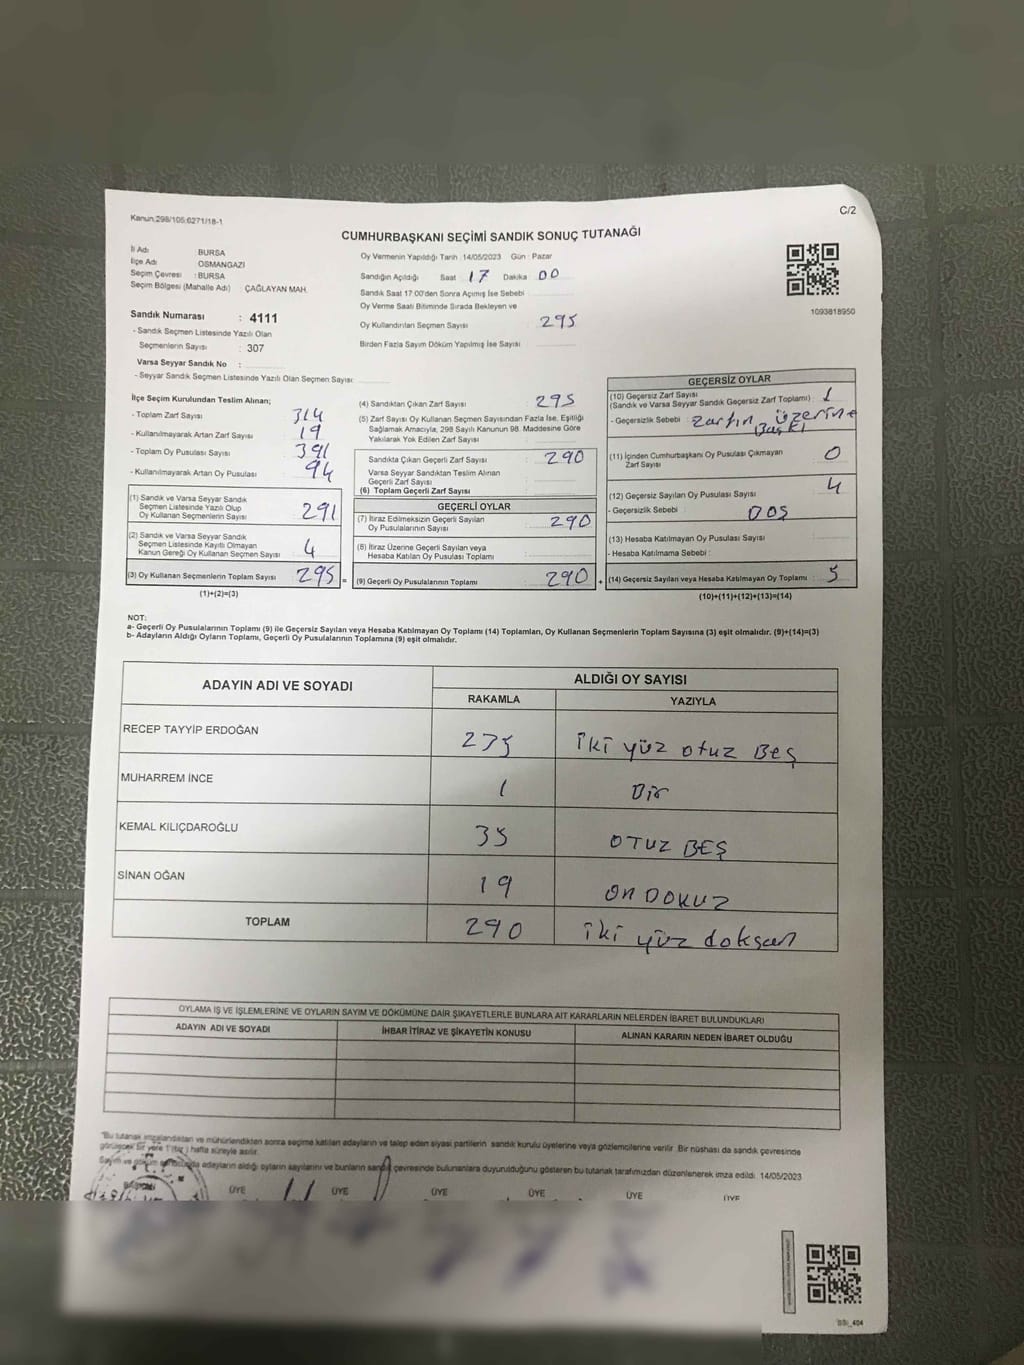 Kanun:298/105:6271/18-1
C/2
CUMHURBAŞKANI SEÇİMİ SANDIK SONUÇ TUTANAĞI
İl Adı BURSA
İlçe Adı OSMANGAZİ
Seçim Çevresi : BURSA
Seçim Bölgesi (Mahalle Adı) : ÇAĞLAYAN MAH.
Sandık Numarası : 4111
- Sandık Seçmen Listesinde Yazılı Olan
Seçmenlerin Sayısı : 307
Varsa Seyyar Sandık No :
- Seyyar Sandık Seçmen Listesinde Yazılı Olan Seçmen Sayısı:
Oy Vermenin Yapıldığı Tarih :14/05/2023 Gün : Pazar
Sandığın Açıldığı Saat 17 Dakika 00
Sandık Saat 17:00'den Sonra Açımış İse Sebebi
Oy Verme Saati Bitiminde Sırada Bekleyen ve
Oy Kullandırılan Seçmen Sayısı : 295
Birden Fazla Sayım Döküm Yapılmış İse Sayısı :
1093818950
İlçe Seçim Kurulundan Teslim Alınan;
- Toplam Zarf Sayısı : 314
- Kullanılmayarak Artan Zarf Sayısı : 19
- Toplam Oy Pusulası Sayısı : 391
- Kullanılmayarak Artan Oy Pusulası : 94
(1) Sandık ve Varsa Seyyar Sandık
Seçmen Listesinde Yazılı Olup
Oy Kullanan Seçmenlerin Sayısı : 291
(2) Sandık ve Varsa Seyyar Sandık
Seçmen Listesinde Kayıtlı Olmayan
Kanun Gereği Oy Kullanan Seçmen Sayısı : 4
(3) Oy Kullanan Seçmenlerin Toplam Sayısı : 295 =
(1)+(2)=(3)
(4) Sandıktan Çıkan Zarf Sayısı : 295
(5) Zarf Sayısı Oy Kullanan Seçmen Sayısından Fazla İse, Eşitliği
Sağlamak Amacıyla, 298 Sayılı Kanunun 98. Maddesine Göre
Yakılarak Yok Edilen Zarf Sayısı :
Sandıkta Çıkan Geçerli Zarf Sayısı : 290
Varsa Seyyar Sandıktan Teslim Alınan
Geçerli Zarf Sayısı :
(6) Toplam Geçerli Zarf Sayısı :
GEÇERLİ OYLAR
(7) İtiraz Edilmeksizin Geçerli Sayılan
Oy Pusulalarının Sayısı : 290
(8) İtiraz Üzerine Geçerli Sayılan veya
Hesaba Katılan Oy Pusulası Toplamı :
(9) Geçerli Oy Pusulalarının Toplamı : 290 +
GEÇERSİZ OYLAR
(10) Geçersiz Zarf Sayısı
(Sandık ve Varsa Seyyar Sandık Geçersiz Zarf Toplamı) : 1
- Geçersizlik Sebebi : Zarfın üzerine
Baskı
(11) İçinden Cumhurbaşkanı Oy Pusulası Çıkmayan
Zarf Sayısı : 0
(12) Geçersiz Sayılan Oy Pusulası Sayısı : 4
- Geçersizlik Sebebi : DOŞ
(13) Hesaba Katılmayan Oy Pusulası Sayısı :
- Hesaba Katılmama Sebebi :
(14) Geçersiz Sayılan veya Hesaba Katılmayan Oy Toplamı : 5
(10)+(11)+(12)+(13)=(14)
NOT:
a- Geçerli Oy Pusulalarının Toplamı (9) ile Geçersiz Sayılan veya Hesaba Katılmayan Oy Toplamı (14) Toplamları, Oy Kullanan Seçmenlerin Toplam Sayısına (3) eşit olmalıdır. (9)+(14)=(3)
b- Adayların Aldığı Oyların Toplamı, Geçerli Oy Pusulalarının Toplamına (9) eşit olmalıdır.
ADAYIN ADI VE SOYADI
ALDIĞI OY SAYISI
RAKAMLA YAZIYLA
RECEP TAYYİP ERDOĞAN 235 iki yüz otuz Beş
MUHARREM İNCE 1 Bir
KEMAL KILIÇDAROĞLU 35 OTUZ BEŞ
SİNAN OĞAN 19 ON DOKUZ
TOPLAM 290 iki yüz doksan
OYLAMA İŞ VE İŞLEMLERİNE VE OYLARIN SAYIM VE DÖKÜMÜNE DAİR ŞİKAYETLERLE BUNLARA AİT KARARLARIN NELERDEN İBARET BULUNDUKLARI
ADAYIN ADI VE SOYADI İHBAR İTİRAZ VE ŞİKAYETİN KONUSU ALINAN KARARIN NEDEN İBARET OLDUĞU
"Bu tutanak imzalandıktan ve mühürlendikten sonra seçime katılan adayların ve talep eden siyasi partilerin sandık kurulu üyelerine veya gözlemcilerine verilir. Bir nüshası da sandık çevresinde
görülecek bir yere 1 (bir) hafta süreyle asılır.
Sayım ve döküm sonucunda adayların aldığı oyların sayılarını ve bunların sandık çevresinde bulunanlara duyurulduğunu gösteren bu tutanak tarafımızdan düzenlenerek imza edildi. 14/05/2023
ÜYE ÜYE ÜYE ÜYE ÜYE ÜYE
BSİ_404